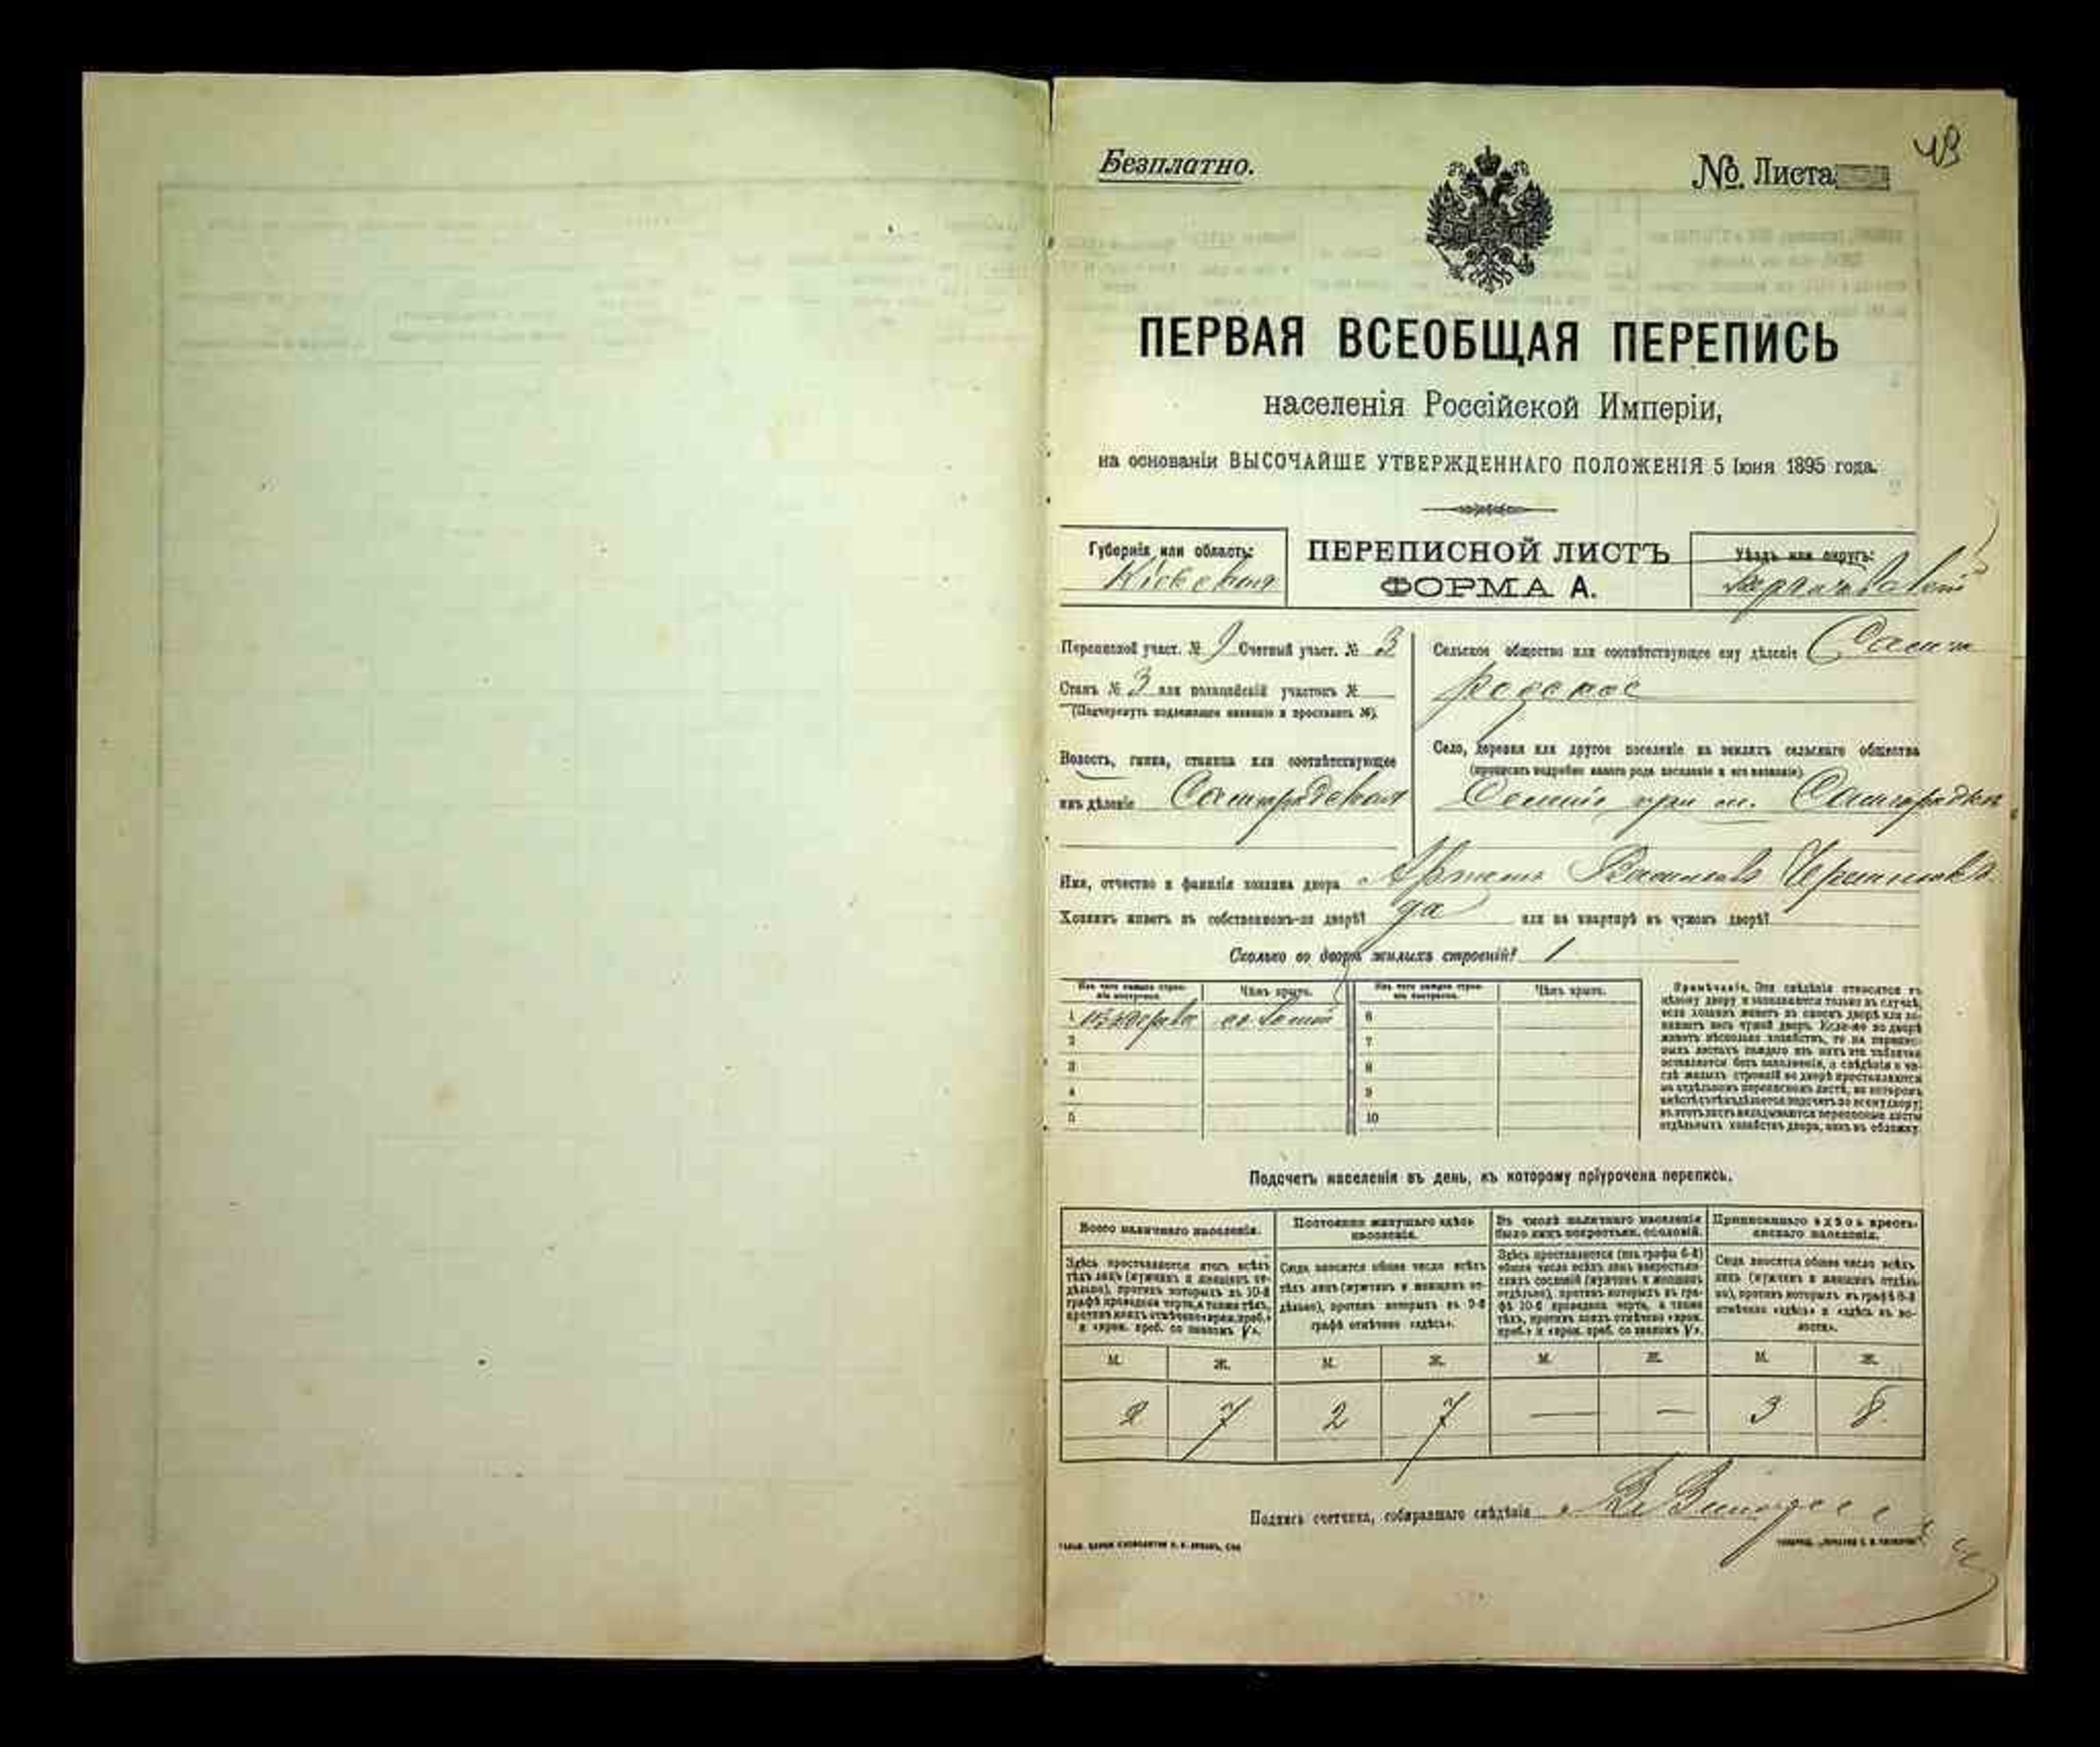 43
Безплатно.
№ Листа
ПЕРВАЯ ВСЕОБЩАЯ ПЕРЕПИСЬ
населенія Россійской Имперіи,
на основаніи ВЫСОЧАЙШЕ УТВЕРЖДЕННАГО ПОЛОЖЕНІЯ 5 Іюня 1895 года.
Губернія или область:
Кіевская
ПЕРЕПИСНОЙ ЛИСТЪ
ФОРМА А.
Уѣздъ или округъ:
Переписной участ. № 9 Счетный участ. № 3
Станъ № 3 или полицейскій участокъ №
(Подчеркнуть подлежащее названіе и проставить №).
Волость, гмина, станица или соотвѣтствующее
имъ дѣленіе
Сельское общество или соотвѣтствующее ему дѣленіе
Село, деревня или другое поселеніе на земляхъ сельскаго общества
(прописать подробно какого рода поселеніе и его названіе)
при м.
Имя, отчество и фамилія хозяина двора
Хозяинъ живетъ въ собственномъ-ли дворѣ? да или на квартирѣ въ чужомъ дворѣ?
Сколько во дворѣ жилыхъ строеній? 1
Изъ чего каждое строеніе построено.
Чѣмъ крыто.
Изъ чего каждое строеніе построено.
Чѣмъ крыто.
1 изъ дерева соломой 6
2 7
3 8
4 9
5 10
Примѣчаніе. Эти свѣдѣнія относятся къ
цѣлому двору и заполняются только въ случаѣ,
если хозяинъ живетъ въ своемъ дворѣ или за-
нимаетъ весь чужой дворъ. Если-же во дворѣ
живетъ нѣсколько хозяйствъ, то на перепис-
ныхъ листахъ каждаго изъ нихъ эта табличка
оставляется безъ заполненія, а свѣдѣнія о чи-
слѣ жилыхъ строеній во дворѣ проставляются
на отдѣльномъ переписномъ листѣ, на которомъ
вмѣстѣ съ тѣмъ дѣлается подсчетъ по всему двору;
въ этотъ листъ вкладываются переписные листы
отдѣльныхъ хозяйствъ двора, какъ въ обложку.
Подсчетъ населенія въ день, къ которому пріурочена перепись.
Всего наличнаго населенія.
Постоянно живущаго здѣсь населенія.
Въ числѣ наличнаго населенія было лицъ некрестьян. сословій.
Приписаннаго здѣсь кресть-янскаго населенія.
Здѣсь проставляется итогъ всѣхъ
тѣхъ лицъ (мужчинъ и женщинъ от-
дѣльно), противъ которыхъ въ 10-й
графѣ проведена черта, а также тѣхъ,
противъ коихъ отмѣчено «врем. преб.»
и «врем. преб. со знакомъ V».
Сюда вносится общее число всѣхъ
тѣхъ лицъ (мужчинъ и женщинъ от-
дѣльно), противъ которыхъ въ 9-й
графѣ отмѣчено «здѣсь».
Здѣсь проставляется (изъ графы 6-й)
общее число всѣхъ лицъ некрестьян-
скихъ сословій (мужчинъ и женщинъ
отдѣльно), противъ которыхъ въ гра-
фѣ 10-й проведена черта, а также
тѣхъ, противъ коихъ отмѣчено «врем.
преб.» и «врем. преб. со знакомъ V».
Сюда вносится общее число всѣхъ
лицъ (мужчинъ и женщинъ отдѣль-
но), противъ которыхъ въ графѣ 8-й
отмѣчено «здѣсь» и «здѣсь въ во-
лости».
М. Ж. М. Ж. М. Ж. М. Ж.
2 7 2 7 — — 3 8
Подпись счетчика, собиравшаго свѣдѣнія